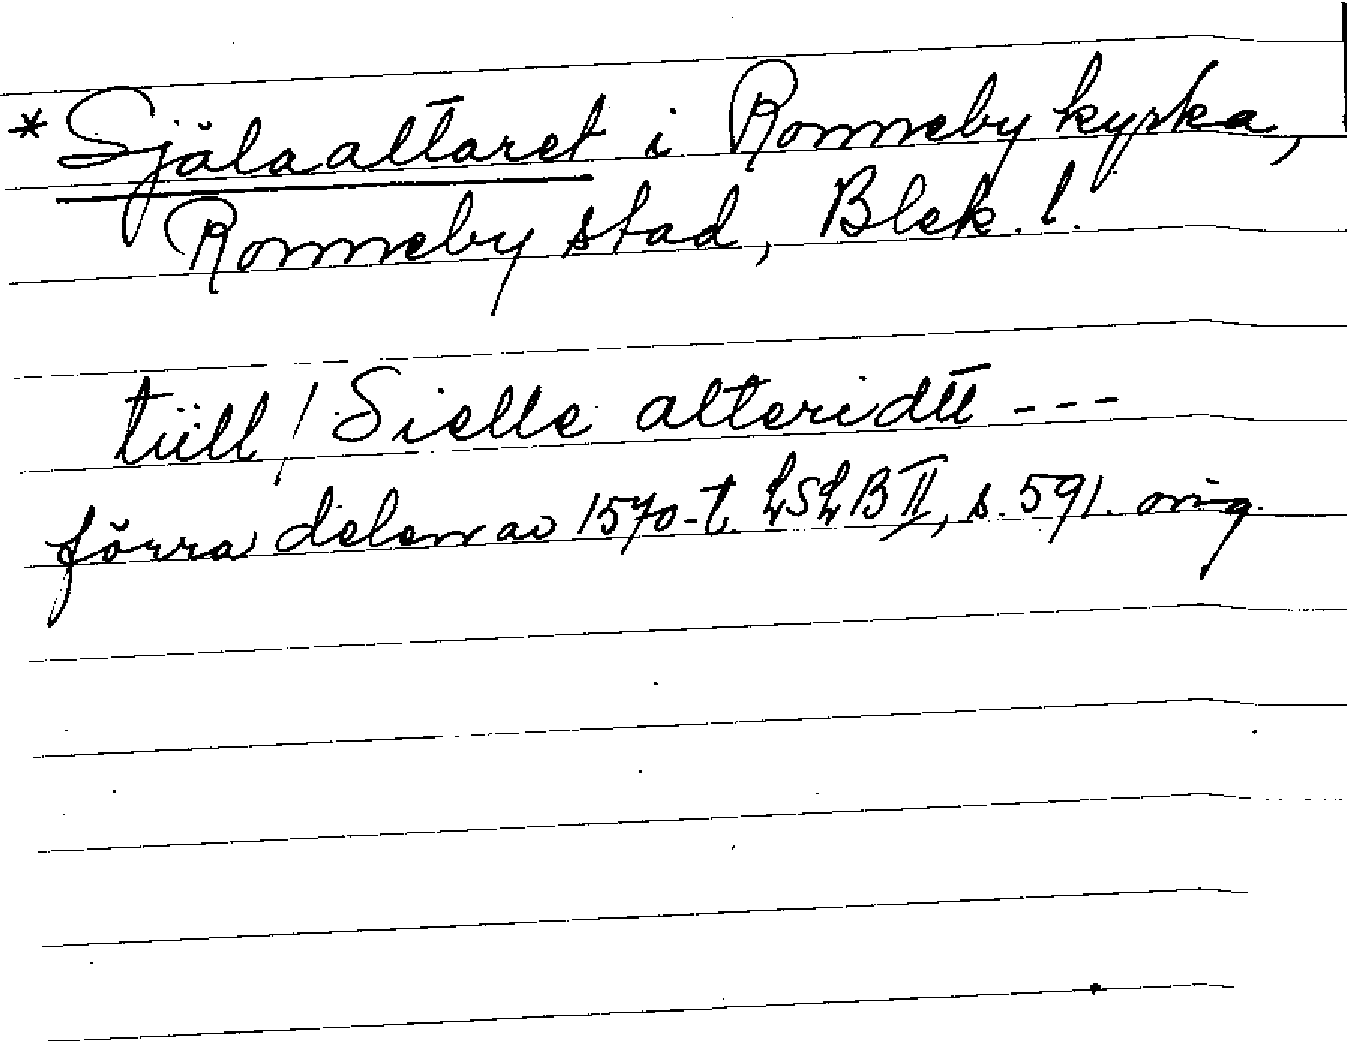 * Själaaltaret i Ronneby kyrka,
Ronneby stad, Blek. l.
tiill / Sielle alteridtt ---
förra delen av 1570-t. LSLB II, s. 591. orig.